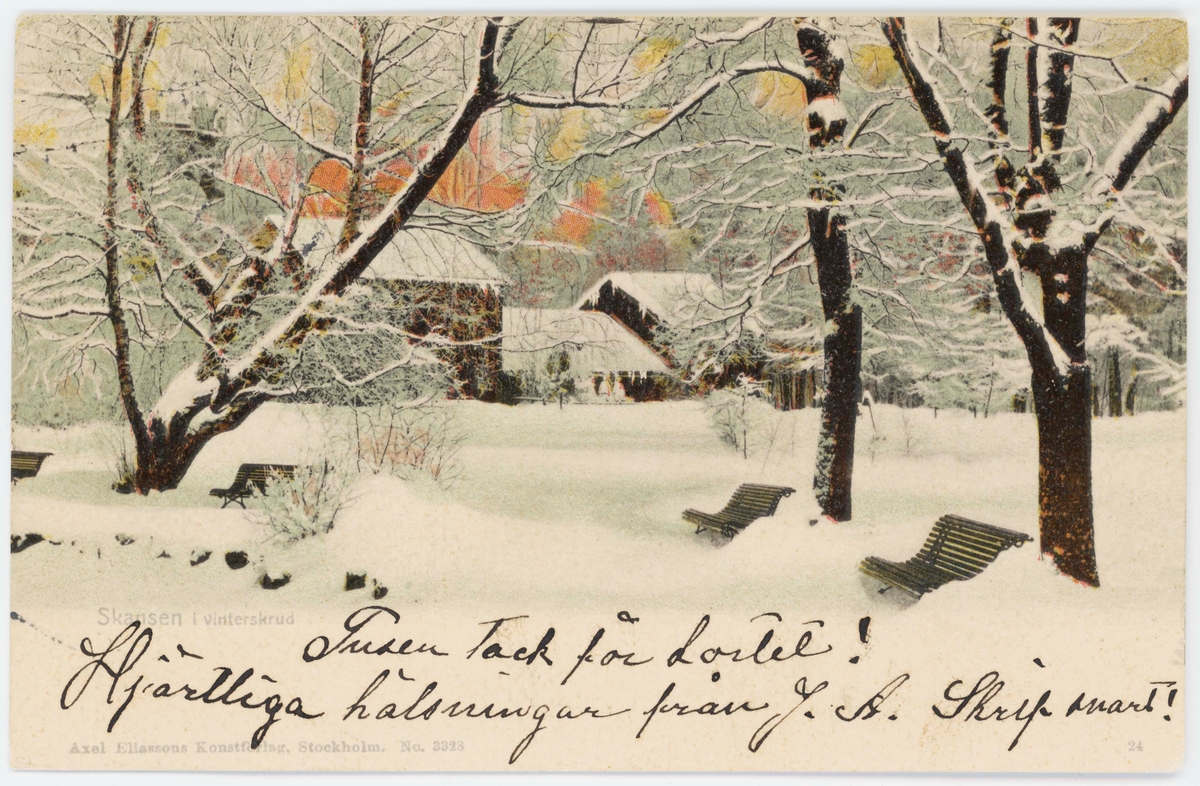 Skansen i vinterskrud
Tusen tack för kortet!
Hjärtliga hälsningar från J. A. Skrif snart!
Axel Eliassons Konstförlag, Stockholm. No. 3328
24